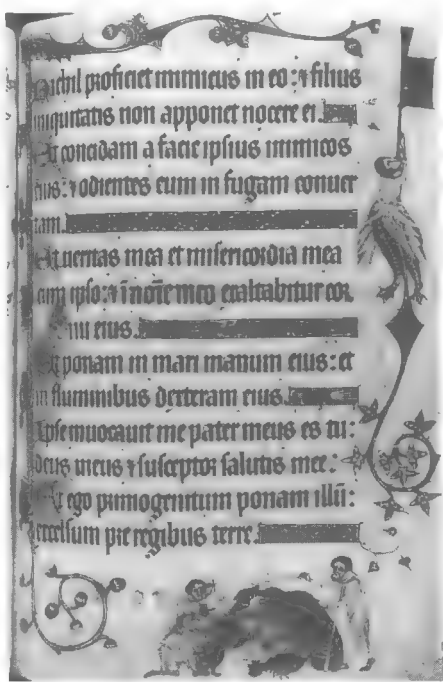 Nichil proficiet inimicus in eo: ⁊ filius
iniquitatis non apponet nocere ei.
Et concidam a facie ipsius inimicos
eius: ⁊ odientes eum in fugam conuer
tam.
Et ueritas mea et misericordia mea
cum ipso: ⁊ ĩ noĩe meo exaltabitur cor
nu eius.
Et ponam in mari manum eius: et
in fluminibus dexteram eius.
Ipse inuocauit me pater meus es tu:
deus meus ⁊ susceptor salutis mee:
Et ego primogenitum ponam illũ:
excelsum pre regibus terre.